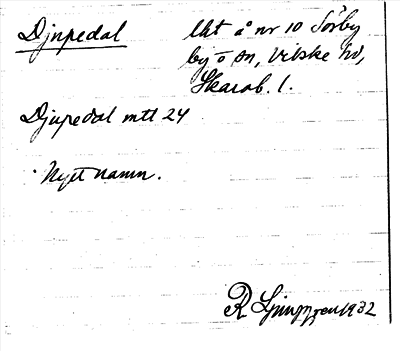 Djupedal
lht å nr 10 Sörby
by o sn, Vilske hd,
Skarab. l.
Djupedal mtl 24
Nytt namn.
R Ljunggren 1932